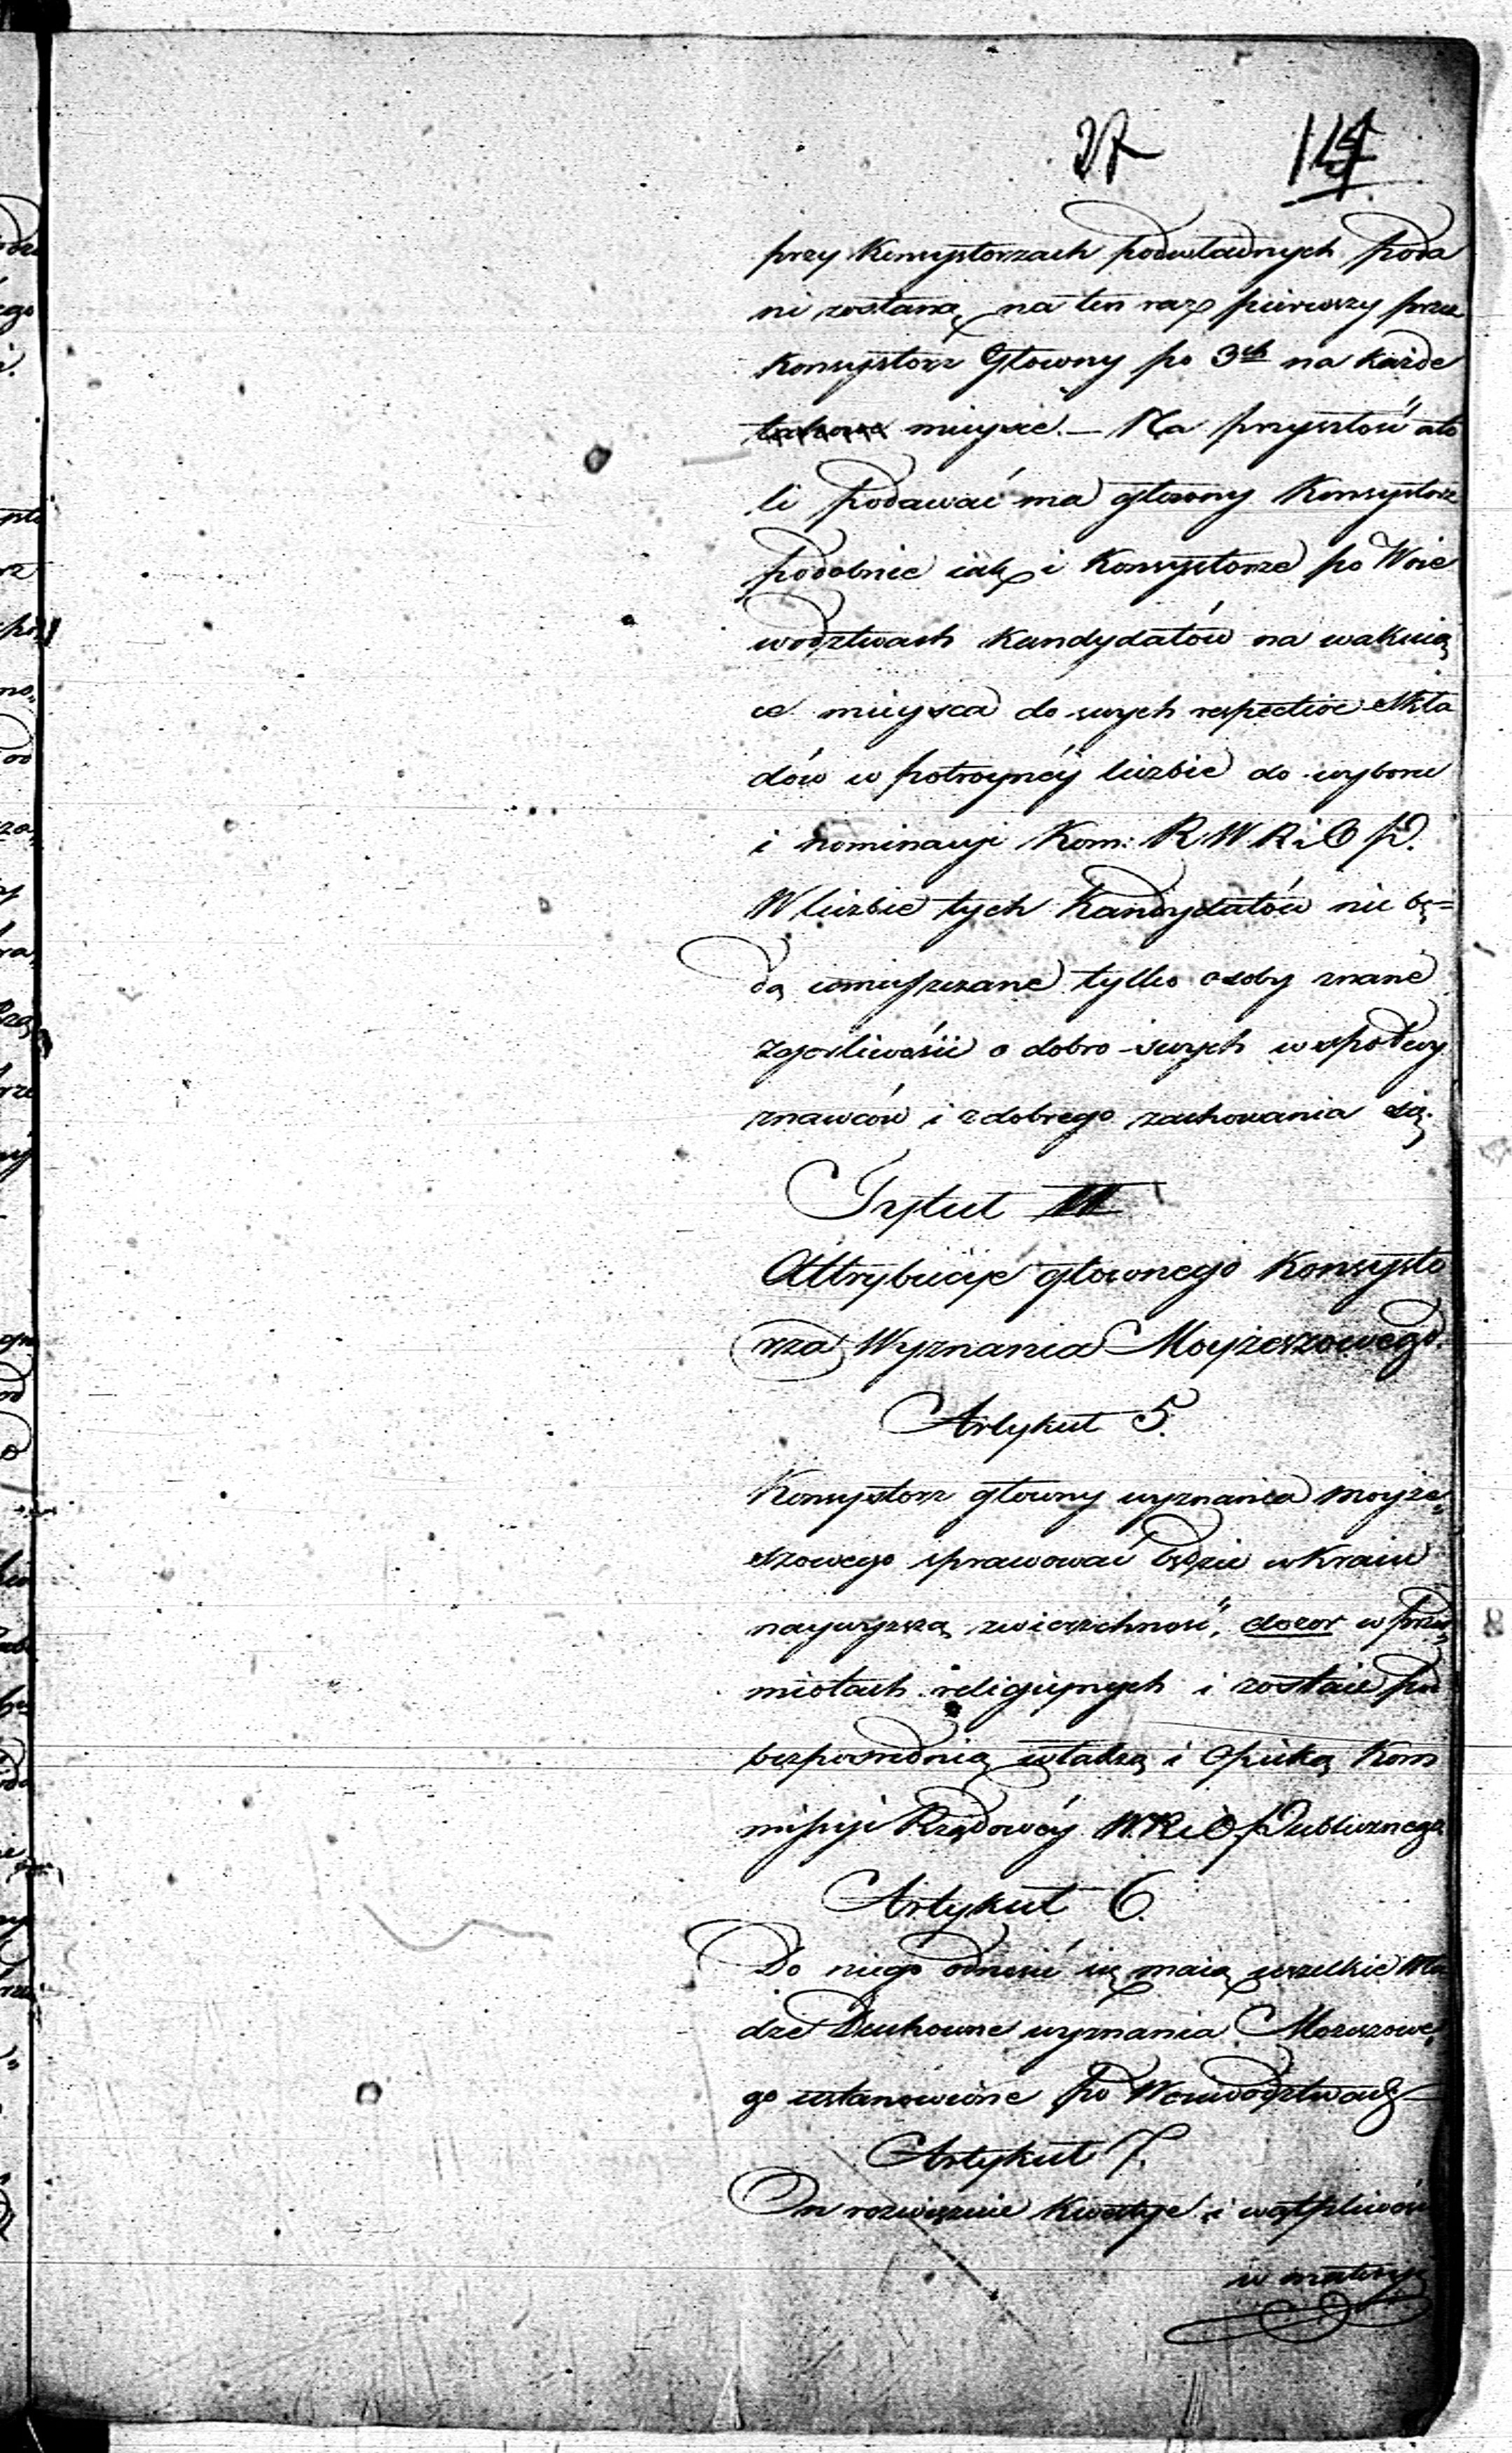 27 114
przy Konsystorzach podwładnych poda
ni zostaną na ten raz pierwszy przez
Konsystorz Główny po 3ch na każde
mieysce. — Na przyszłość ato
li podawać ma główny Konsystorz
podobnie iak i Konsystorze po Woie
wodztwach Kandydatów na wakuią
ce mieysca do swych respective skła
dów w potroynéy liczbie do wyboru
i nominacyi Kom: R. W. R. i O. P.
W liczbie tych Kandydatów nie bę=
dą umieszczane tylko osoby znane
z gorliwości o dobro swych współwy
znawców i z dobrego zachowania się.
Tytuł III
Attrybucye głównego Konsysto
rza Wyznania Moyżeszowego.
Artykuł 5.
Konsystorz główny wyznania moyże„
szowego sprawować będzie w Kraiu
naywyższą zwierzchność, dozor w przed„
miotach religiynych i zostaie pod
bezpośrednią władzą i Opieką Kom
missyi Rządowéy W. R. i O. Publicznego
Artykuł 6.
Do niego odnosić się maią wszelkie Wła
dze Duchowne wyznania Mozeszowe„
go ustanowione po Woiewodztwach —
Artykuł 7.
On rozwięzuie Kwestye i wątpliwości
w materyi